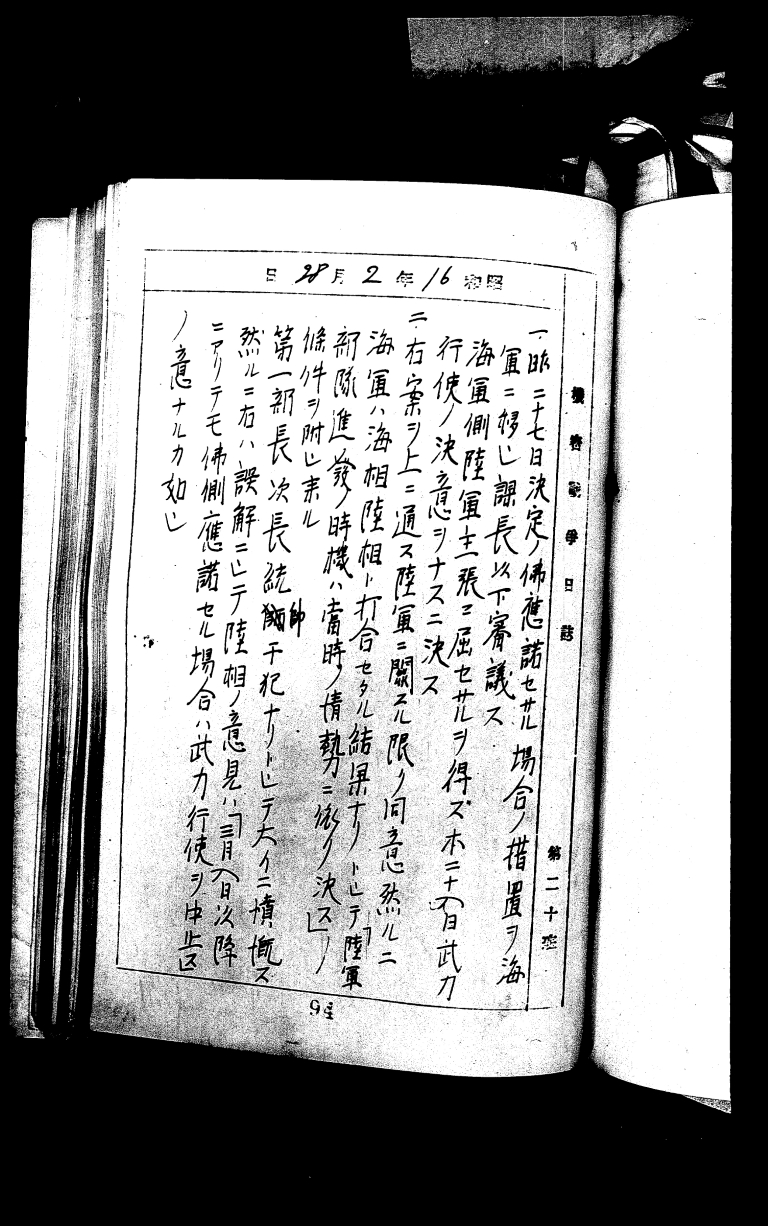 機密戰爭日誌
第二十班
昭和16年2月28日
一、昨二十七日決定ノ佛應諾セサル場合ノ措置ヲ海
軍ニ移シ課長以下審議ス
海軍側陸軍主張ニ屈セサルヲ得ズ本二十八日武力
行使ノ決意ヲナスニ決ス
二、右案ヲ上ニ通ス陸軍ニ關スル限リ同意然ルニ
海軍ハ海相陸相ト打合セタル結果ナリトシテ「陸軍
部隊進發ノ時機ハ當時ノ情勢ニ依リ決ス」ノ
條件ヲ附シ来ル
第一部長次長統帥干犯ナリトシテ大イニ憤慨ス
然ルニ右ハ誤解ニシテ陸相ノ意見ハ「三月八日以降
ニアリテモ佛側應諾セル場合ハ武力行使ヲ中止ス」
ノ意ナルカ如シ
94